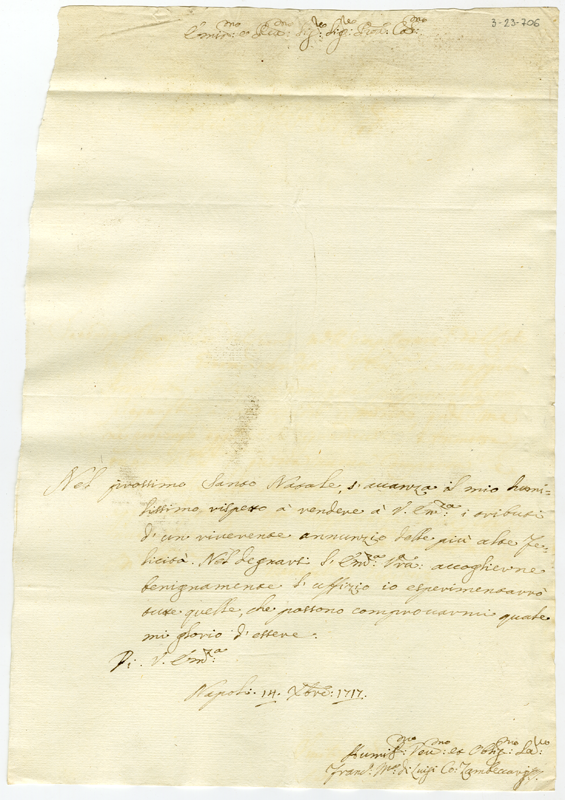 3-23-706
Emin:mo e Rev:mo Sig:re Sig:re Pron: Col:mo
Nel prossimo Santo Natale, s'auanza il mio humi-
lissimo rispeto à rendere à V. Em:za i tributi
di un riuerente annunzio delle più alte Fe-
licità. Nel degnarsi l'Em:za Vra: accoglierne
benignamente l'uffizio io esperimentarrò
tute quelle, che possono comprouarmi quale
mi glorio d'essere.
Di V. Em:za
Napoli 14. Xbre: 1717.
Humil:mo Deu:mo et Oblig:mo Se:re
Fran:co Ma: di Luigi Co: Zambeccari